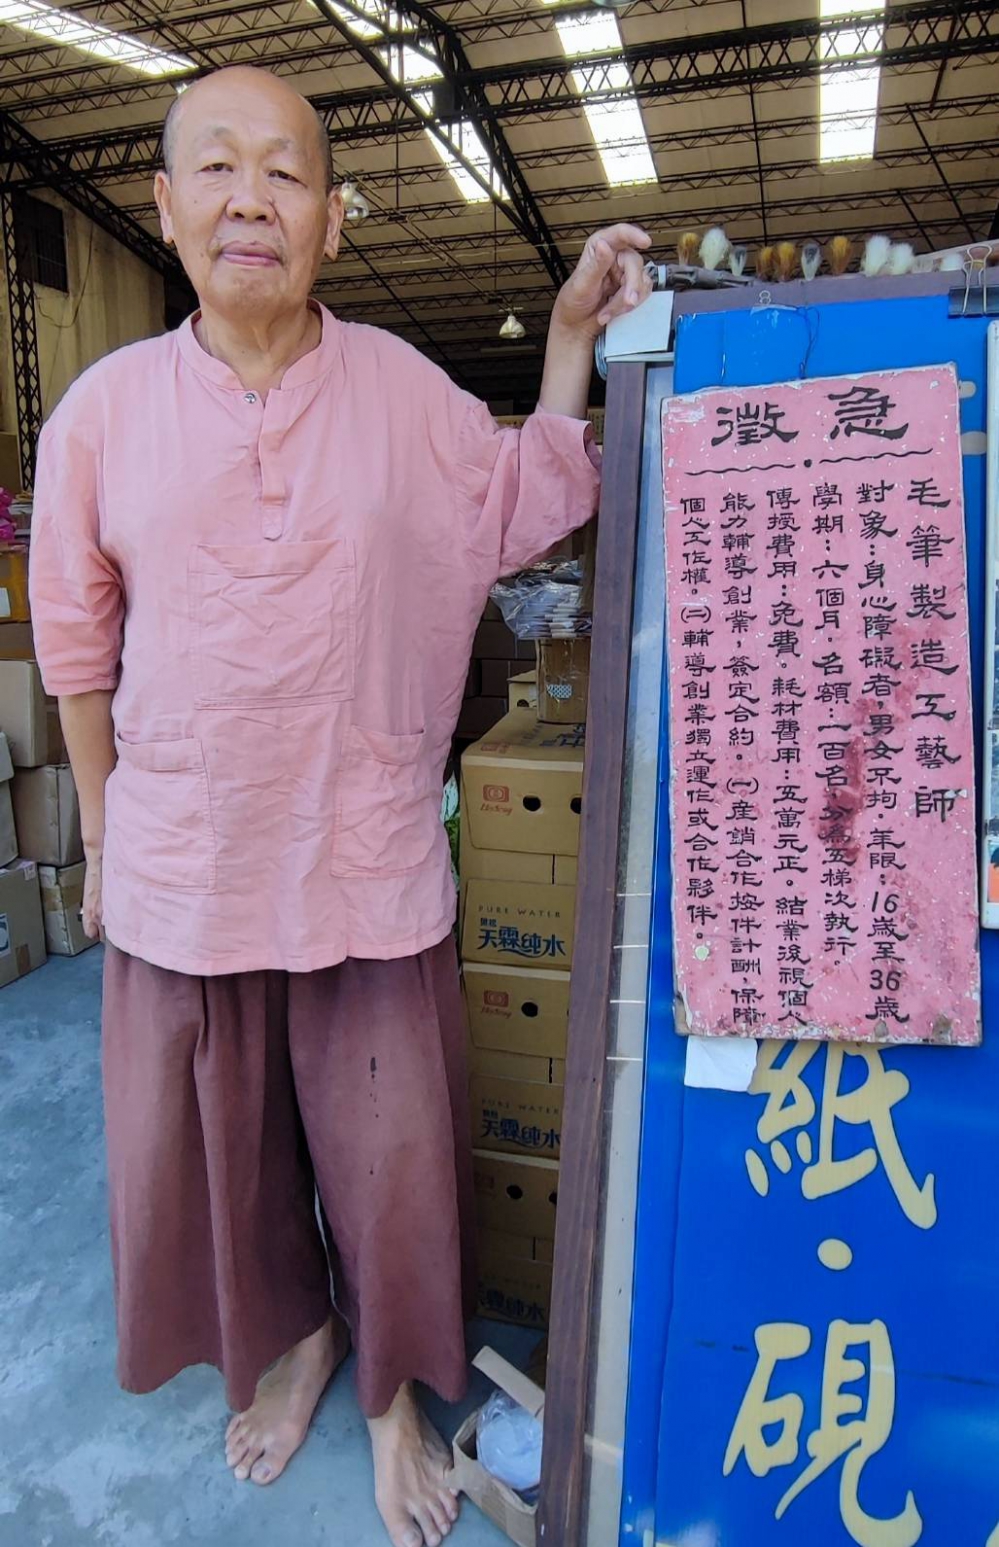 急徵
毛筆製造工藝師
對象：身心障礙者，男女不拘．年限：16歲至36歲
學期：六個月．名額：一百名．分為五梯次執行。
傳授費用：免費。耗材費用：五萬元正。結業後視個人
能力輔導創業，簽定合約。㈠產銷合作按件計酬，保障
個人工作權。㈡輔導創業獨立運作或合作夥伴。
紙·硯
PURE WATER
天霖纯水
PURE WATER
天霖纯水
天霖纯水